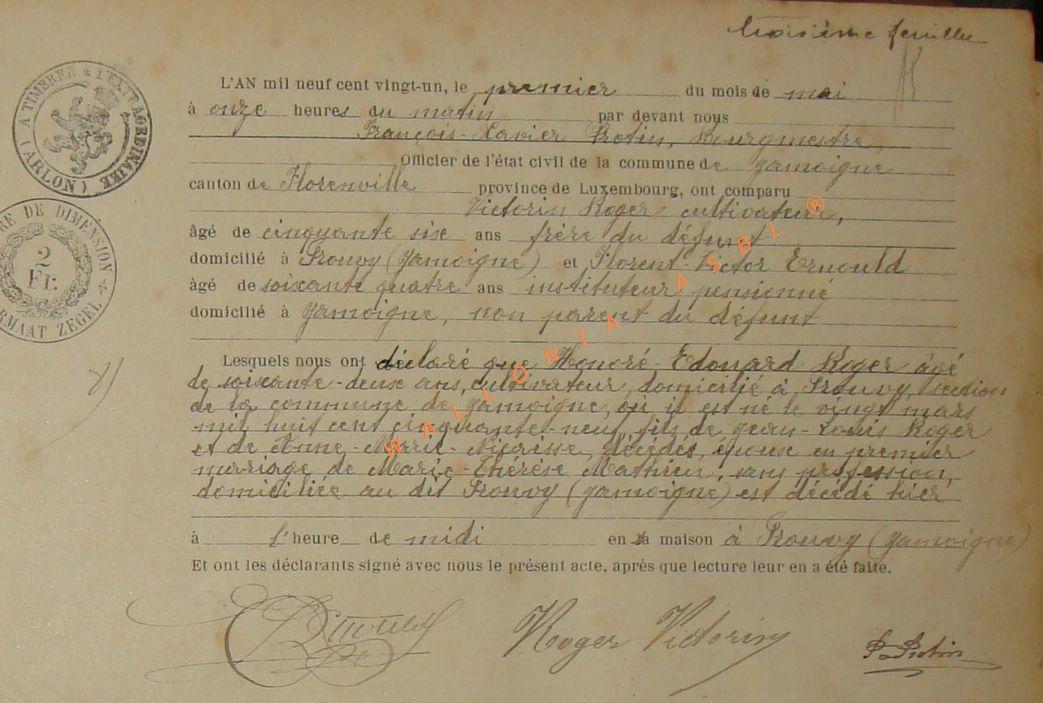 troisième feuillet
L'AN mil neuf cent vingt-un, le premier du mois de mai
à onze heures du matin par devant nous
François-Xavier Protin, Bourgmestre,
Officier de l'état civil de la commune de Jamoigne
canton de Florenville province de Luxembourg, ont comparu
Victorin Roger cultivateur,
âgé de cinquante sixe ans frère du défunt
domicilié à Prouvy (Jamoigne) et Florent Victor Ernould
âgé de soixante quatre ans instituteur pensionné
domicilié à Jamoigne, non parent du défunt
Lesquels nous ont déclaré que Honoré Edouard Roger âgé
de soixante-deux ans, cultivateur, domicilié à Prouvy, section
de la commune de Jamoigne, où il est né le vingt mars
mil huit cent cinquante-neuf, fils de Jean-Louis Roger
et de Anne-Marie décédés, époux en premier
mariage de Marie-Thérèse Mathieu, sans profession,
domiciliée au dit Prouvy (Jamoigne) est décédé hier
à l'heure de midi en sa maison à Prouvy (Jamoigne)
Et ont les déclarants signé avec nous le présent acte, après que lecture leur en a été faite.
Ernould Roger Victorin P. Protin
A TIMBRER A L'EXTRAORDINAIRE
(ARLON)
RE DE DIMENSION
2
Fr.
RMAAT ZEGEL
WALLONIA ASBL ®